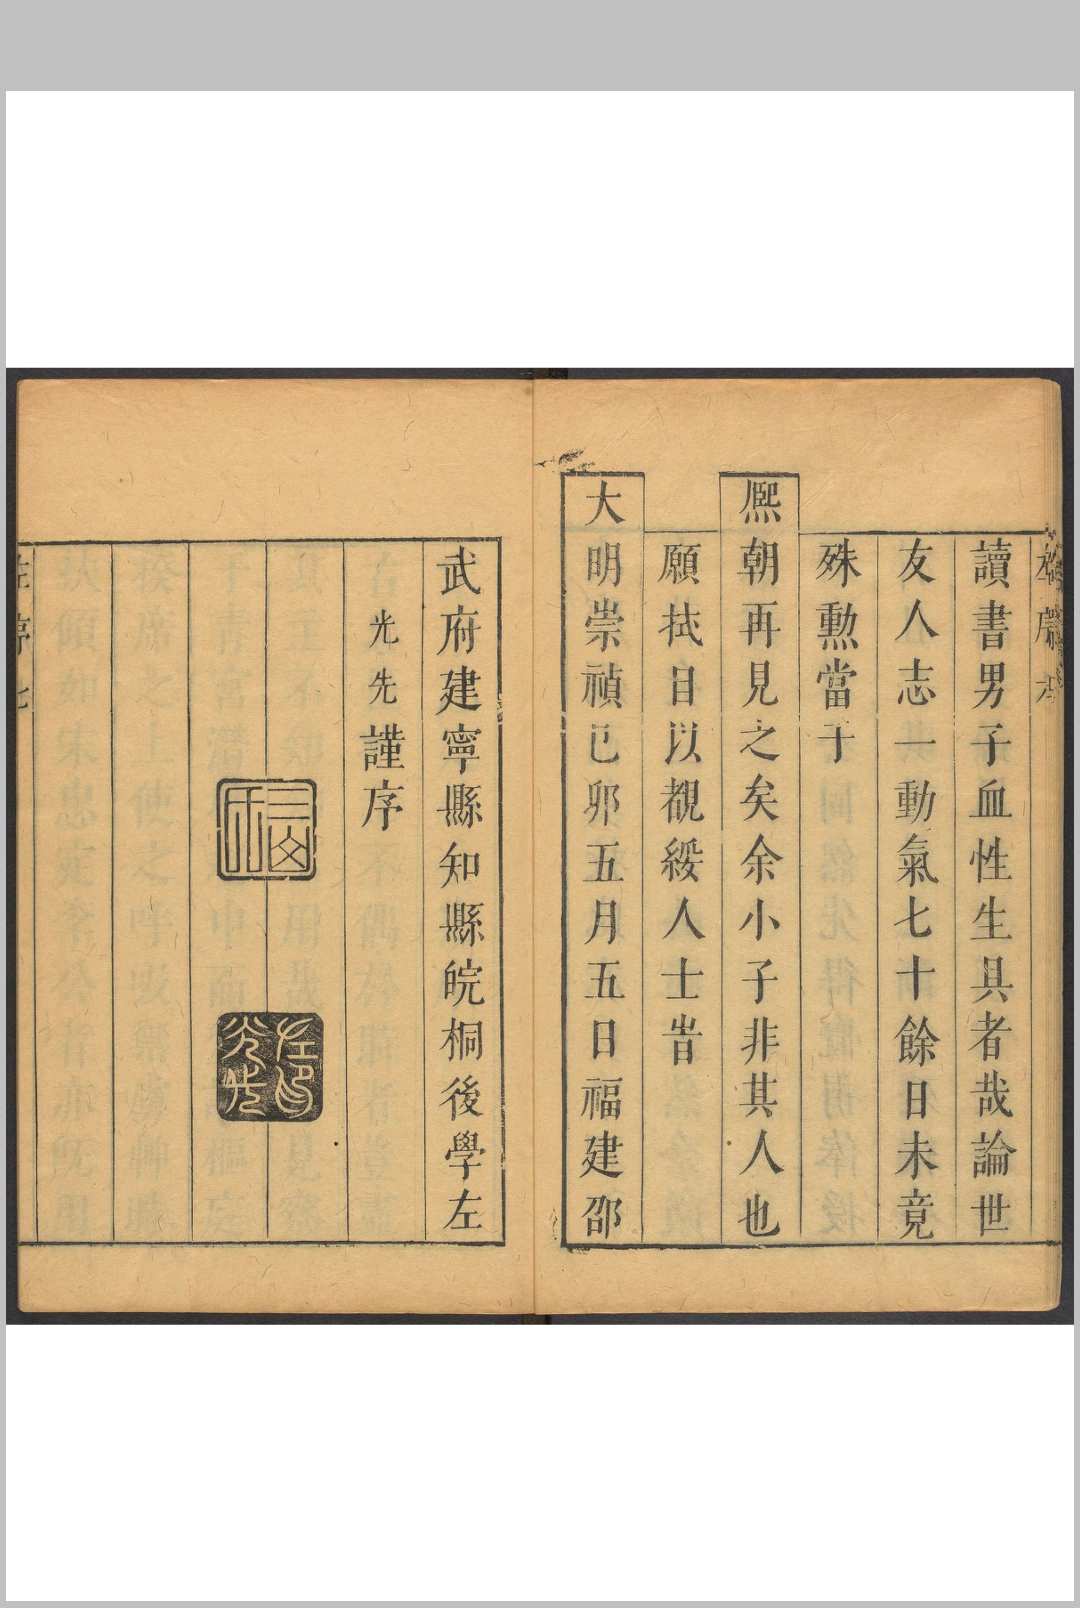 讀書男子血性生具者哉論世
友人志一動氣七十餘日未竟
殊勳當于
熙朝再見之矣余小子非其人也
願拭目以覩綏人士旹
大明崇禎己卯五月五日福建邵
武府建寧縣知縣皖桐後學左
光先謹序
左印光先
左序七